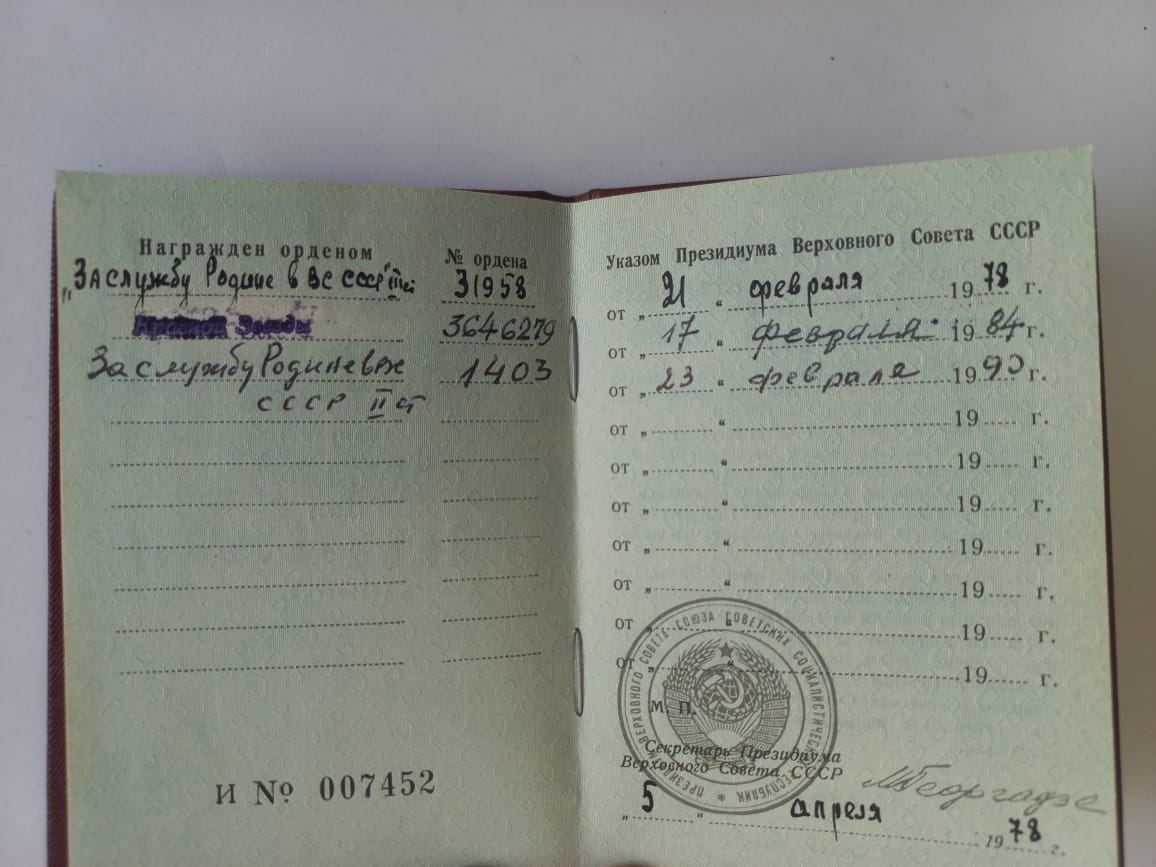 Награжден орденом
№ ордена
"За службу Родине в ВС СССР" III ст
31958
Красной Звезды
3646279
За службу Родине в ВС
1403
СССР II ст
И № 007452
Указом Президиума Верховного Совета СССР
от „21“ февраля 1978 г.
от „17“ февраля 1984 г.
от „23“ февраля 1990 г.
от „ “ 19 г.
от „ “ 19 г.
от „ “ 19 г.
от „ “ 19 г.
от „ “ 19 г.
от „ “ 19 г.
от „ “ 19 г.
М. П.
ПРЕЗИДИУМ ВЕРХОВНОГО СОВЕТА СОЮЗА СОВЕТСКИХ СОЦИАЛИСТИЧЕСКИХ РЕСПУБЛИК
Секретарь Президиума
Верховного Совета СССР
МГеоргадзе
„5“ апреля 1978 г.